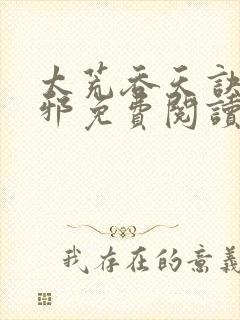 大荒吞天訣
邪免費閱讀
我存在的意義